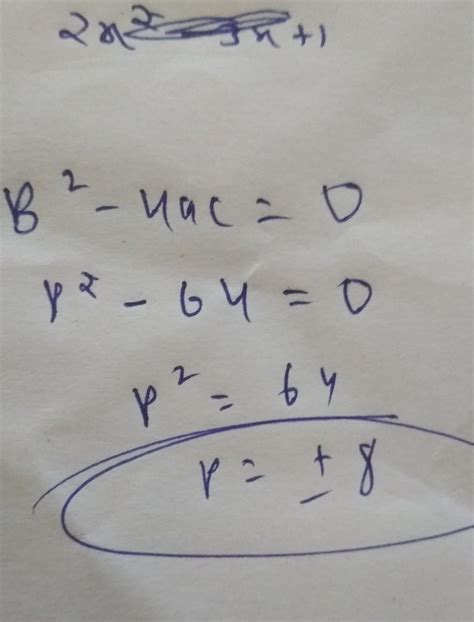 2x² x+1
B² - 4ac = 0
p² - 64 = 0
p² = 64
p = ± 8